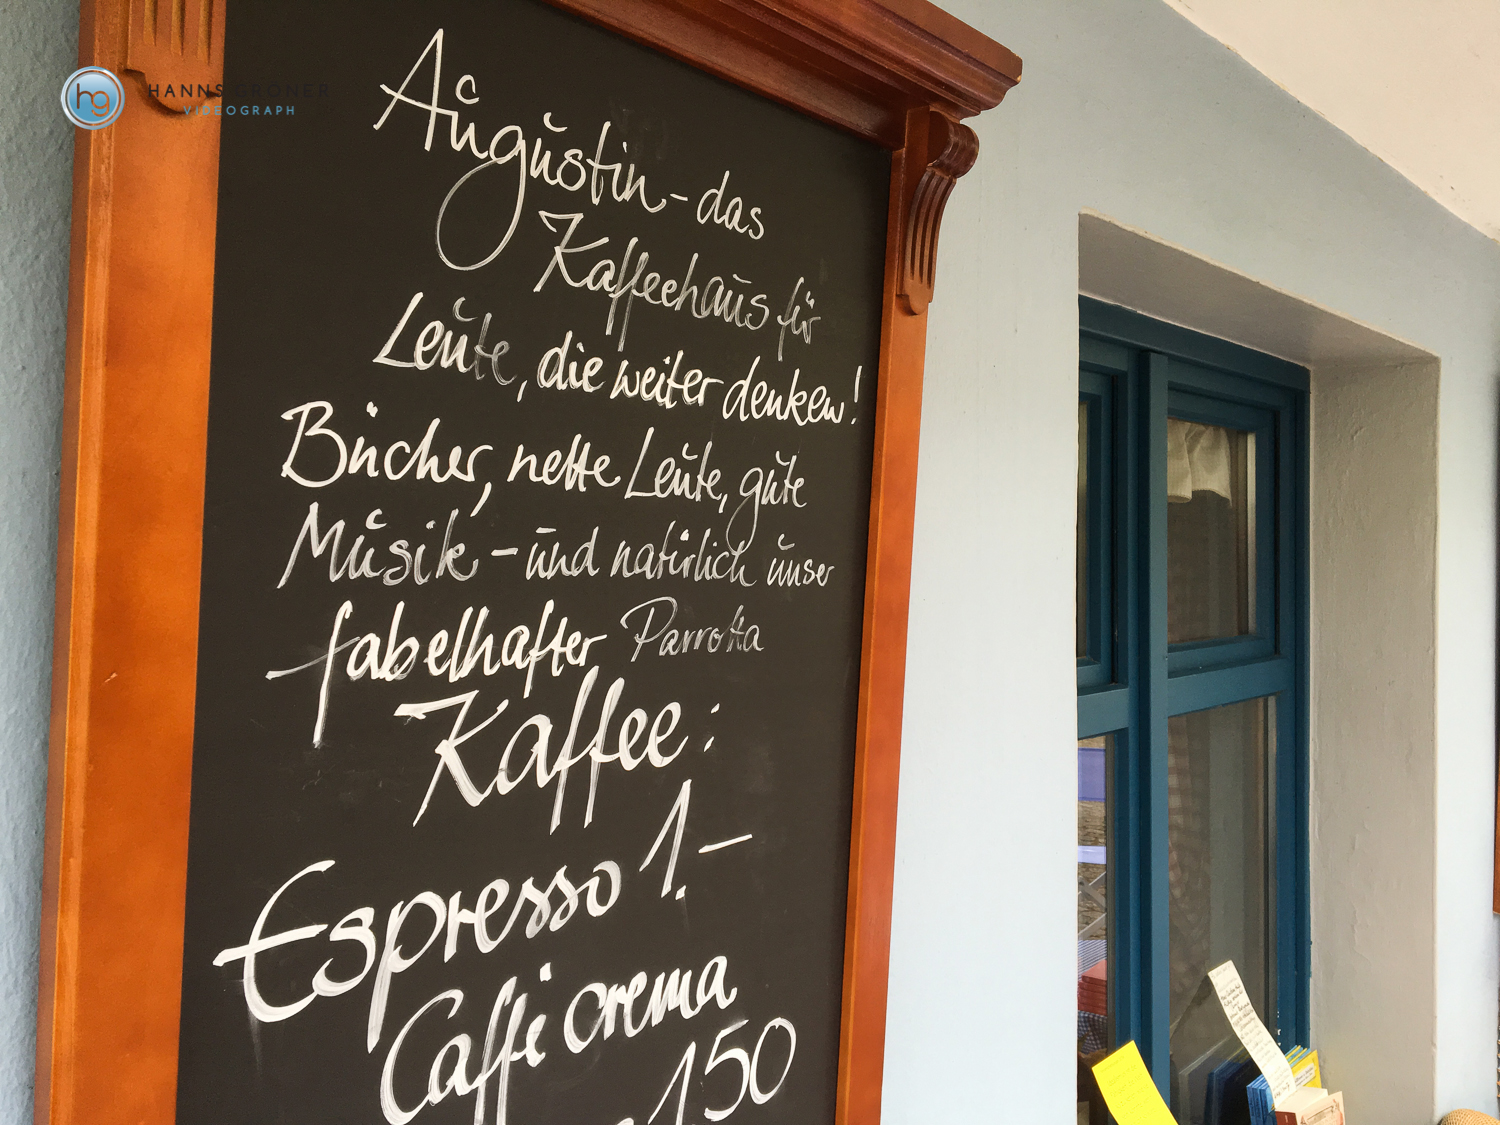 hg HANNS GRONER
VIDEOGRAPH
Augustin - das
Kaffeehaus für
Leute, die weiter denken!
Bücher, nette Leute, gute
Musik - und natürlich unser
fabelhafter Parrotta
Kaffee:
Espresso 1.-
Caffè crema
150